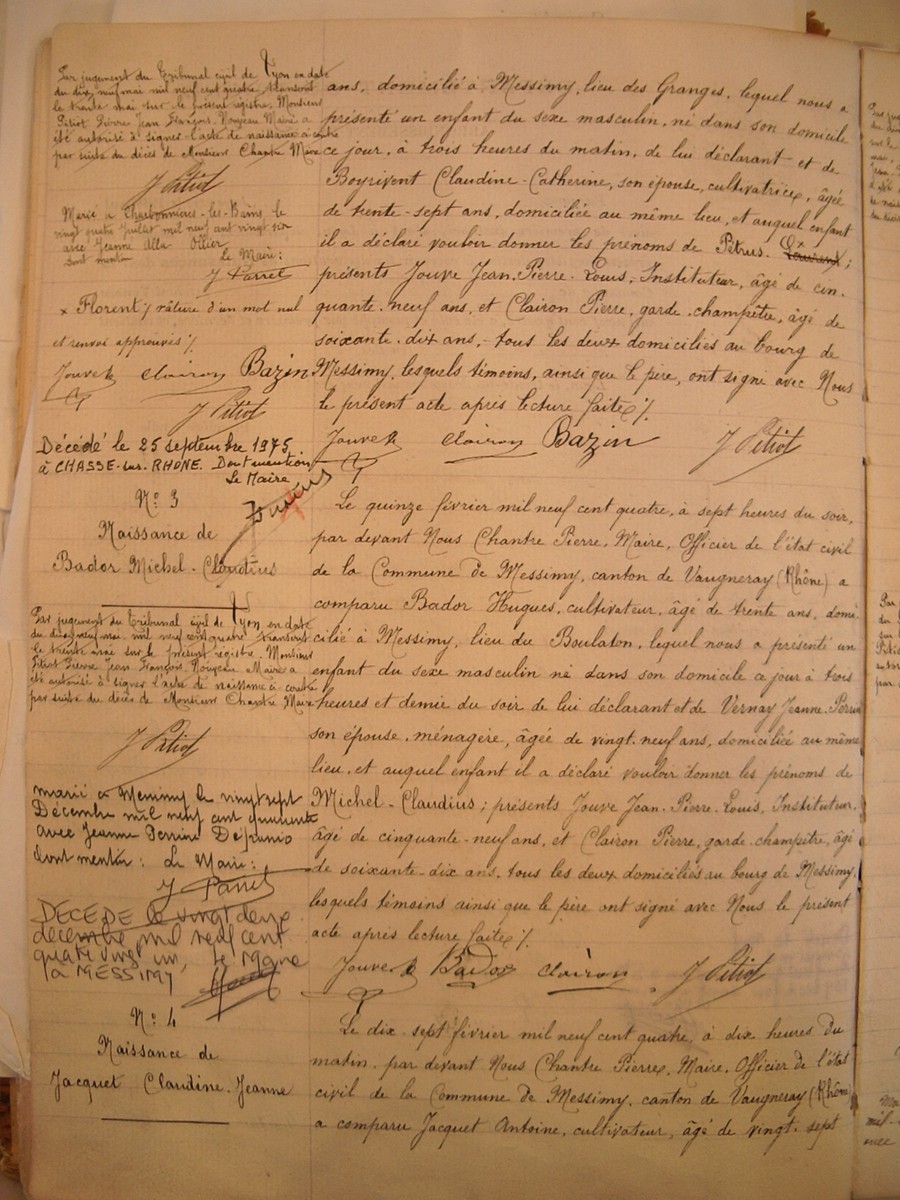 Par jugement du Tribunal civil de Lyon en date
du dix neuf mai mil neuf cent quatre, transcrit
le trente mai sur le présent registre, Monsieur
Pitiot Pierre Jean François, Nouveau Maire a
été autorisé à signer l'acte de naissance ci-contre
par suite du décès de Monsieur Chantre Maire
J Pitiot
Marié à Charbonnières-les-Bains, le
vingt quatre Juillet mil neuf cent vingt six
avec Jeanne Ollier
Dont mention
Le Maire:
J Parret
x Florent / râture d'un mot nul
et renvoi approuvés /.
Jouve Clairon Bazin
J Pitiot
Décédé le 25 septembre 1975
à CHASSE-sur-RHÔNE. Dont mention
Le Maire
ans, domicilié à Messimy, lieu des Granges, lequel nous a
présenté un enfant du sexe masculin, né dans son domicile
ce jour, à trois heures du matin, de lui déclarant et de
Boyrivent Claudine-Catherine, son épouse, cultivatrice, âgée
de trente-sept ans, domiciliée au même lieu, et auquel enfant
il a déclaré vouloir donner les prénoms de Pétrus. x ;
présents Jouve Jean-Pierre-Louis, Instituteur, âgé de cin-
quante-neuf ans, et Clairon Pierre, garde-champêtre, âgé de
soixante-dix ans, tous les deux domiciliés au bourg de
Messimy, lesquels témoins, ainsi que le père, ont signé avec Nous
le présent acte après lecture faite /.
Jouve Clairon Bazin J Pitiot
N° 3
Naissance de
Bador Michel-Claudius
Par jugement du Tribunal civil de Lyon en date
du dix neuf mai, mil neuf cent quatre transcrit
le trente mai sur le présent registre, Monsieur
Pitiot Pierre Jean François, Nouveau Maire a
été autorisé à signer l'acte de naissance ci-contre
par suite du décès de Monsieur Chantre Maire
J Pitiot
marié à Messimy le vingt sept
Décembre mil neuf cent
avec Jeanne Perrine
dont mention: Le Maire:
J Parret
DECEDE le vingt deux
décembre mil neuf cent
quatre vingt un,
à MESSIMY le Maire
Le quinze février mil neuf cent quatre, à sept heures du soir,
par devant Nous Chantre Pierre, Maire, Officier de l'état civil
de la Commune de Messimy, canton de Vaugneray (Rhône) a
comparu Bador Hugues, cultivateur, âgé de trente ans, domi-
cilié à Messimy, lieu du Boulaton, lequel nous a présenté un
enfant du sexe masculin né dans son domicile ce jour à trois
heures et demie du soir de lui déclarant et de Vernay Jeanne-Perrine
son épouse, ménagère, âgée de vingt-neuf ans, domiciliée au même
lieu, et auquel enfant il a déclaré vouloir donner les prénoms de
Michel-Claudius; présents Jouve Jean-Pierre-Louis, Instituteur,
âgé de cinquante-neuf ans, et Clairon Pierre, garde-champêtre, âgé
de soixante-dix ans, tous les deux domiciliés au bourg de Messimy,
lesquels témoins ainsi que le père ont signé avec Nous le présent
acte après lecture faite /.
Jouve Bador Clairon J Pitiot
N° 4
Naissance de
Jacquet Claudine-Jeanne
Le dix-sept février mil neuf cent quatre, à dix heures du
matin, par devant Nous Chantre Pierre, Maire, Officier de l'état
civil de la Commune de Messimy, canton de Vaugneray (Rhône)
a comparu Jacquet Antoine, cultivateur, âgé de vingt-sept